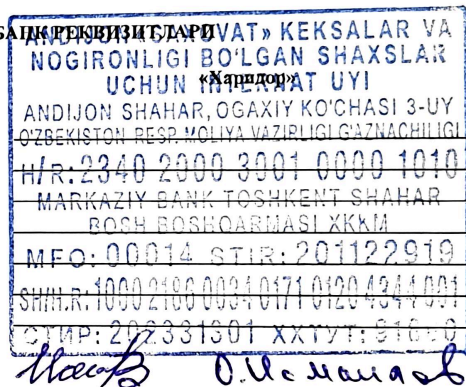 БАНК РЕКВИЗИТЛАРИ
ANDIJON «SAXOVAT» KEKSALAR VA
NOGIRONLIGI BO'LGAN SHAXSLAR
«Харидор»
UCHUN INTERNAT UYI
ANDIJON SHAHAR, OGAXIY KO'CHASI 3-UY
O'ZBEKISTON RESP. MOLIYA VAZIRLIGI G'AZNACHILIGI
H/R: 2340 2000 3001 0000 1010
MARKAZIY BANK TOSHKENT SHAHAR
BOSH BOSHQARMASI XKKM
MFO: 00014 STIR: 201122919
SH/H.R: 1000 2186 0034 0171 0120 4344 001
СТИР: 203331301 ХХТУТ:
О.Исмаилов